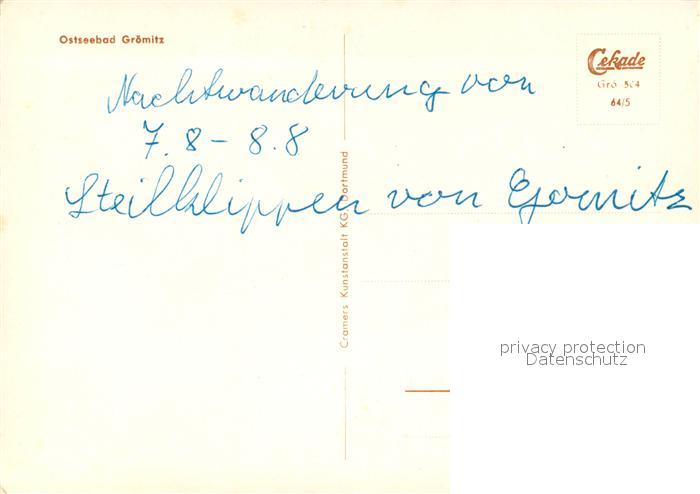 Ostseebad Grömitz
Cekade
Grö 504
64/5
Nachtwanderung von
7.8 - 8.8
Steilklippen von
Cramers Kunstanstalt KG, Dortmund
privacy protection
Datenschutz